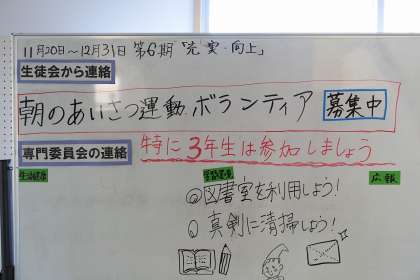 11月20日〜12月31日 第6期「充実・向上」
生徒会から連絡
朝のあいさつ運動ボランティア 募集中
専門委員会の連絡 特に3年生は参加しましょう
広報
◎図書室を利用しよう!
◎真剣に清掃しよう!